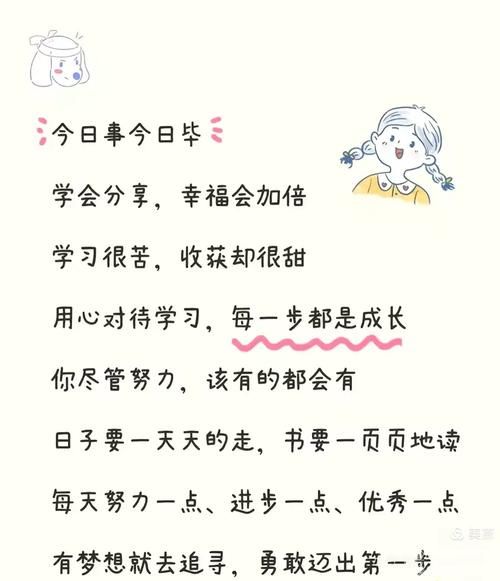 今日事今日毕
学会分享，幸福会加倍
学习很苦，收获却很甜
用心对待学习，每一步都是成长
你尽管努力，该有的都会有
日子要一天天的走，书要一页页地读
每天努力一点、进步一点、优秀一点
有梦想就去追寻，勇敢迈出第一步